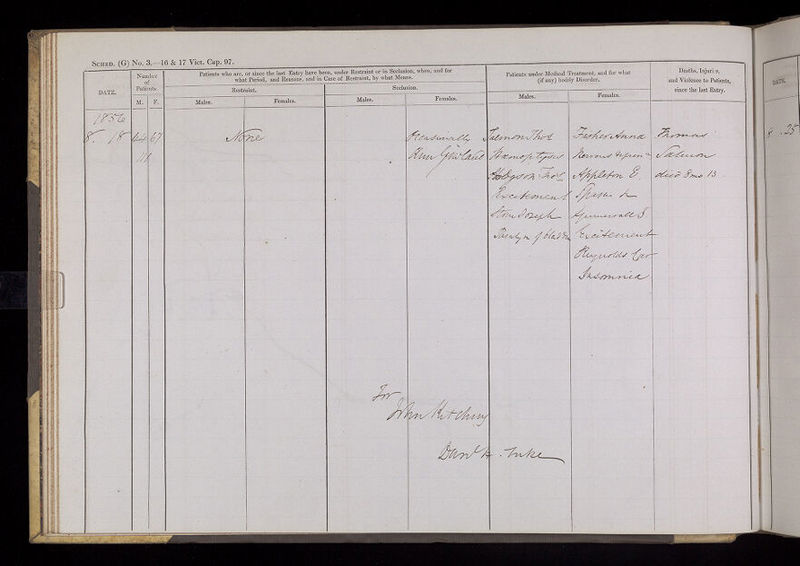 SCHED. (G) No. 3.—16 & 17 Vict. Cap. 97.
DATE.
Number of Patients.
M. F.
Patients who are, or since the last Entry have been, under Restraint or in Seclusion, when, and for
what Period, and Reasons, and in Case of Restraint, by what Means.
Restraint.
Seclusion.
Males. Females. Males. Females.
Patients under Medical Treatment, and for what
(if any) bodily Disorder.
Males. Females.
Deaths, Injuries,
and Violence to Patients,
since the last Entry.
DATE.
1856
8. 18 44 67 None Occasionally Salmon Thos Fisher Anna Thomas
111 Haemoptysis Nervous Salmon
Hodgson Thos Appleton E died 8 mo 13
Excitement
Joseph
of Excitement
Reynolds
Insomnia
For
John Kitching
Danl H. Tuke
8. 25